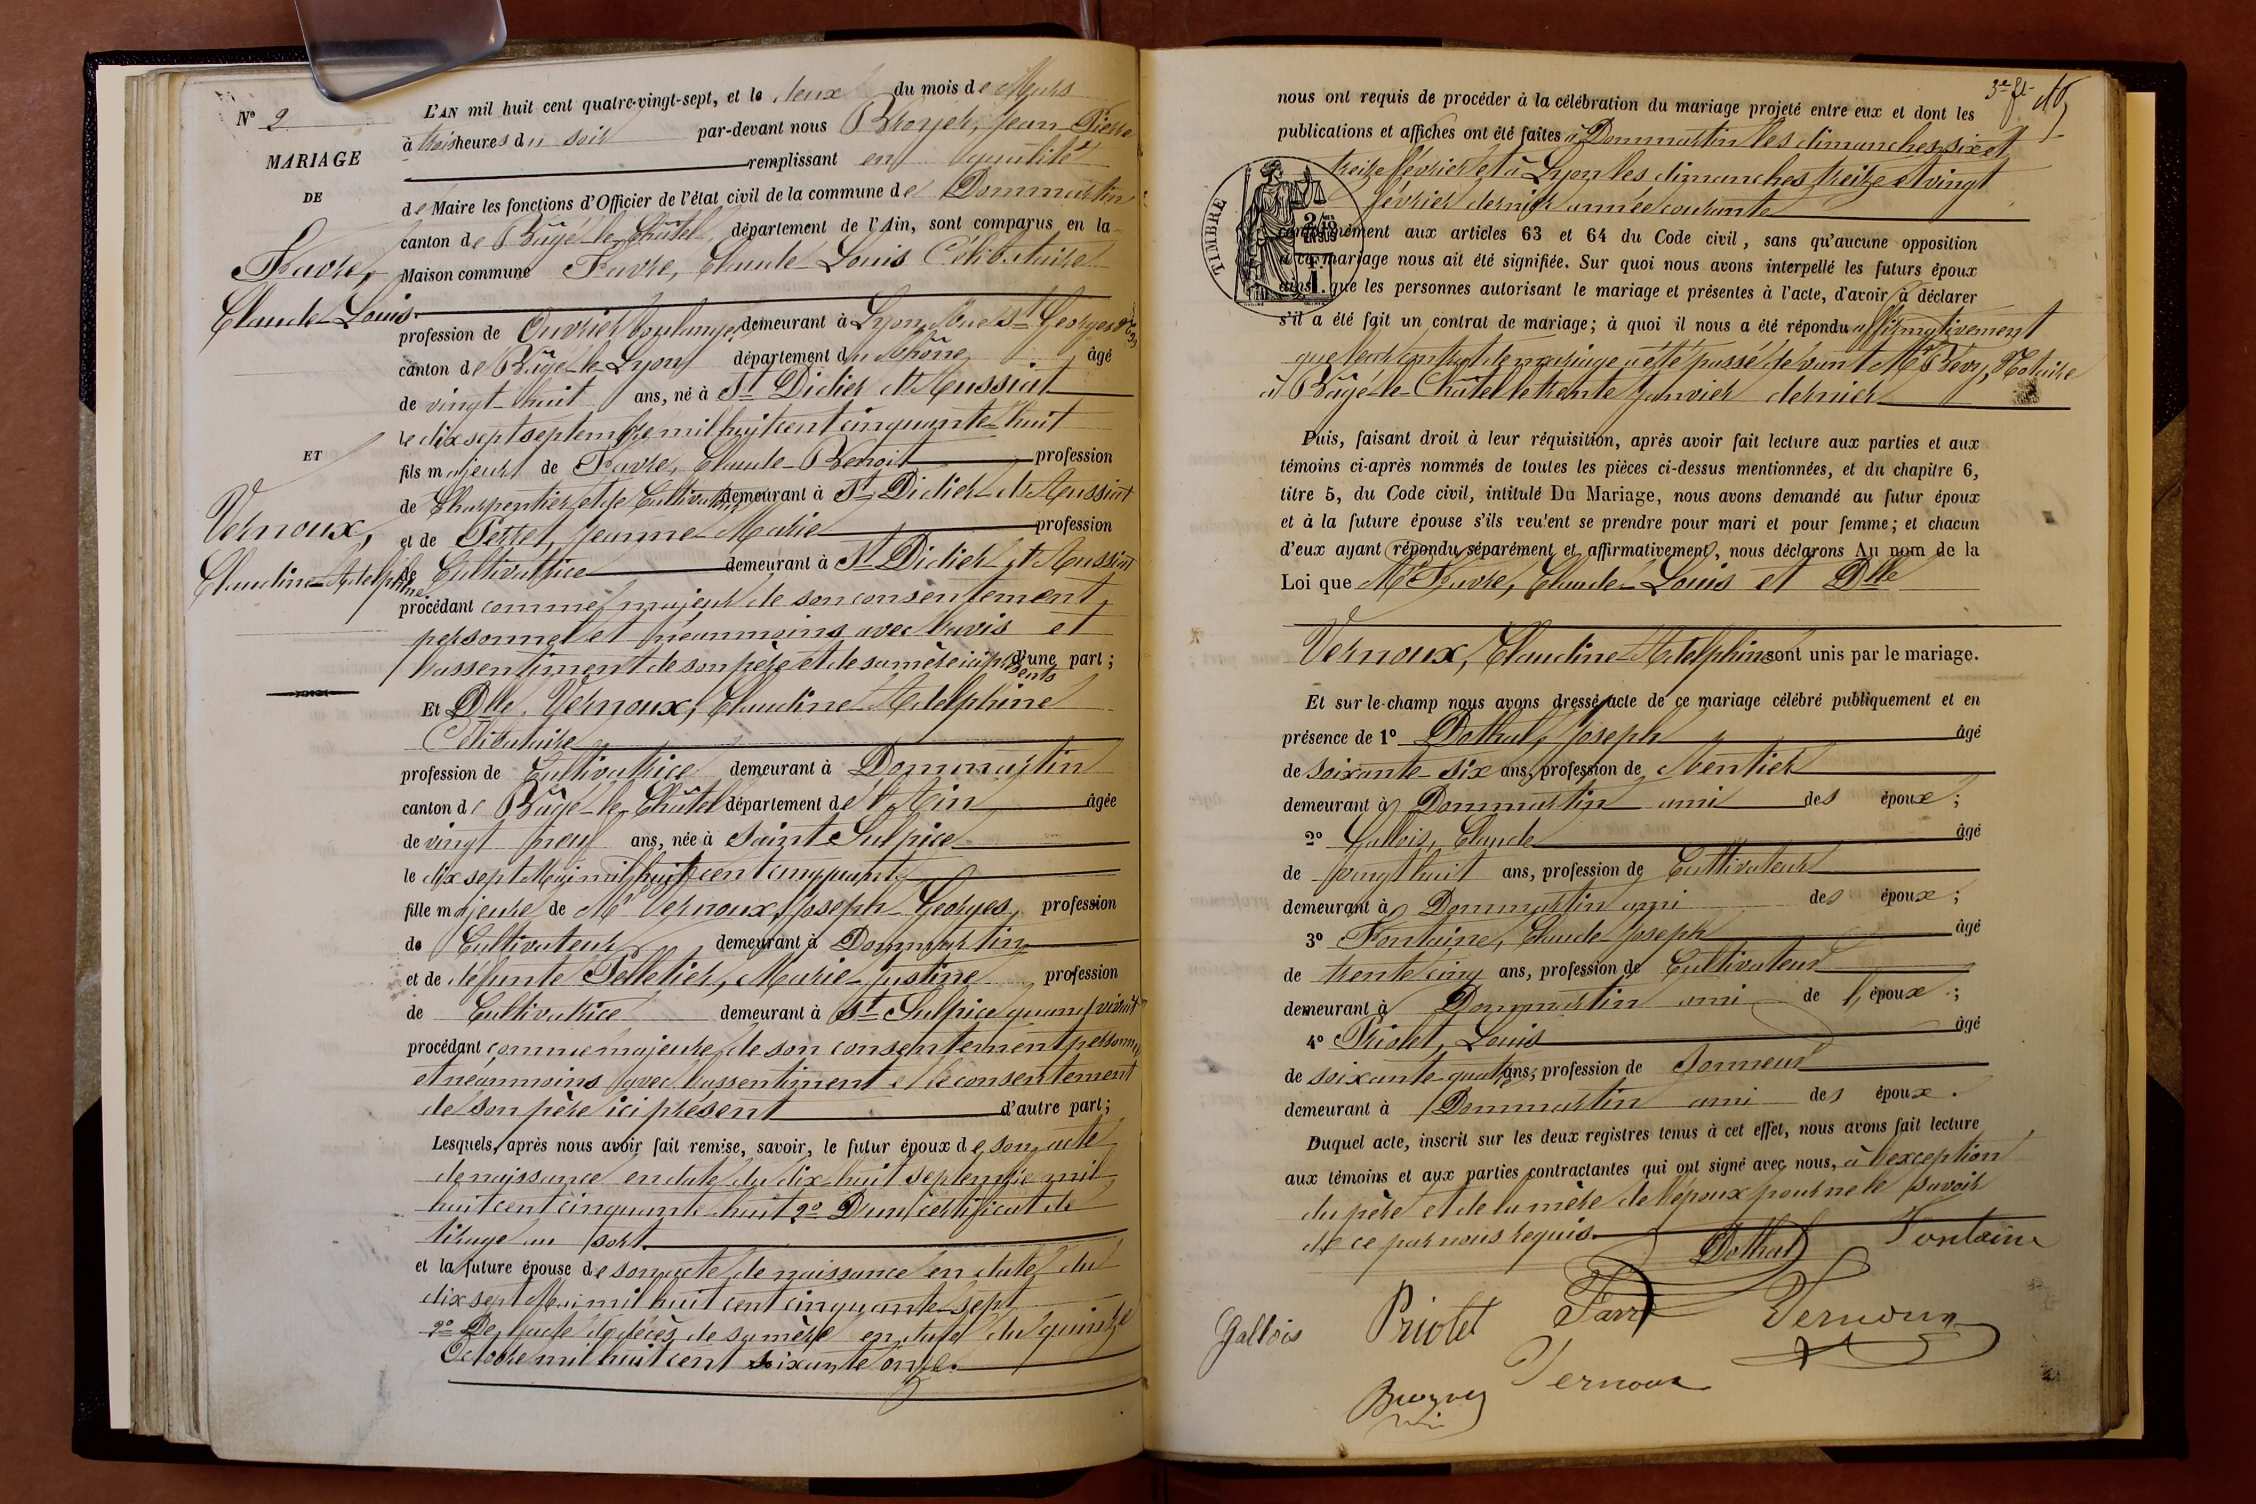 N° 2
MARIAGE
DE
Favre,
Claude-Louis
ET
Vernoux,
Claudine-Adelphine
L'AN mil huit cent quatre-vingt-sept, et le deux du mois de Mars
à trois heures du soir par-devant nous Broyer, Jean-Pierre
remplissant en qualité
de Maire les fonctions d'Officier de l'état civil de la commune de Dommartin
canton de Bâgé-le-Châtel département de l'Ain, sont comparus en la
Maison commune Favre, Claude-Louis Célibataire
profession de Ouvrier boulanger demeurant à Lyon, rue St Georges
canton de Bâgé-le-Lyon département du Rhône âgé
de vingt-huit ans, né à St Didier d'Aussiat
le dix sept septembre mil huit cent cinquante-huit
fils majeur de Favre, Claude-Benoit profession
de Charpentier et de Cultivateur demeurant à St Didier-d'Aussiat
et de Perret, Jeanne-Marie profession
de Cultivatrice demeurant à St Didier-d'Aussiat
procédant comme majeur de son consentement
personnel et néanmoins avec l'avis et
l'assentiment de son père et de sa mère ici présents d'une part;
Et Dlle Vernoux, Claudine-Adelphine
Célibataire
profession de Cultivatrice demeurant à Dommartin
canton de Bâgé-le-Châtel département de l'Ain âgée
de vingt neuf ans, née à Saint-Sulpice
le dix sept Mai mil huit cent cinquante
fille majeure de Mr Vernoux, Joseph-Georges, profession
de Cultivateur demeurant à Dommartin
et de défunte Pelletier, Marie-Justine profession
de Cultivatrice demeurant à St Sulpice quand vivait
procédant comme majeure de son consentement personnel
et néanmoins avec l'assentiment et le consentement
de son père ici présent d'autre part;
Lesquels, après nous avoir fait remise, savoir, le futur époux de son acte
de naissance en date du dix huit septembre mil
huit cent cinquante-huit 2° D'un certificat de
tirage au sort
et la future épouse de son acte de naissance en date du
dix sept Mai mil huit cent cinquante-sept
2° De l'acte de décès de sa mère en date du quinze
Octobre mil huit cent soixante onze.
3e ft
nous ont requis de procéder à la célébration du mariage projeté entre eux et dont les
publications et affiches ont été faites à Dommartin les dimanches six et
treize février et à Lyon les dimanches treize et vingt
février dernier année courante
TIMBRE
conformément aux articles 63 et 64 du Code civil, sans qu'aucune opposition
à ce mariage nous ait été signifiée. Sur quoi nous avons interpellé les futurs époux
ainsi que les personnes autorisant le mariage et présentes à l'acte, d'avoir à déclarer
s'il a été fait un contrat de mariage; à quoi il nous a été répondu affirmativement
que leur contrat de mariage a été passé devant Me Bevy, Notaire
à Bâgé-le-Châtel le trente Janvier dernier
Puis, faisant droit à leur réquisition, après avoir fait lecture aux parties et aux
témoins ci-après nommés de toutes les pièces ci-dessus mentionnées, et du chapitre 6,
titre 5, du Code civil, intitulé Du Mariage, nous avons demandé au futur époux
et à la future épouse s'ils veulent se prendre pour mari et pour femme; et chacun
d'eux ayant répondu séparément et affirmativement, nous déclarons Au nom de la
Loi que Mr Favre, Claude-Louis et Dlle
Vernoux, Claudine-Adelphine sont unis par le mariage.
Et sur-le-champ nous avons dressé acte de ce mariage célébré publiquement et en
présence de 1° Dothal, Joseph âgé
de soixante-six ans, profession de Rentier
demeurant à Dommartin ami des époux;
2° Gallois, Claude âgé
de vingt huit ans, profession de Cultivateur
demeurant à Dommartin ami des époux;
3° Fontaine, Claude-Joseph âgé
de trente cinq ans, profession de Cultivateur
demeurant à Dommartin ami de l'époux;
4° Priolet, Louis âgé
de soixante-quatre ans, profession de Sonneur
demeurant à Dommartin ami des époux.
Duquel acte, inscrit sur les deux registres tenus à cet effet, nous avons fait lecture
aux témoins et aux parties contractantes qui ont signé avec nous, à l'exception
du père et de la mère de l'époux pour ne le savoir
de ce par nous requis.
Dothal Fontaine
Gallois Priolet Favre Vernoux
Vernoux
Broyer